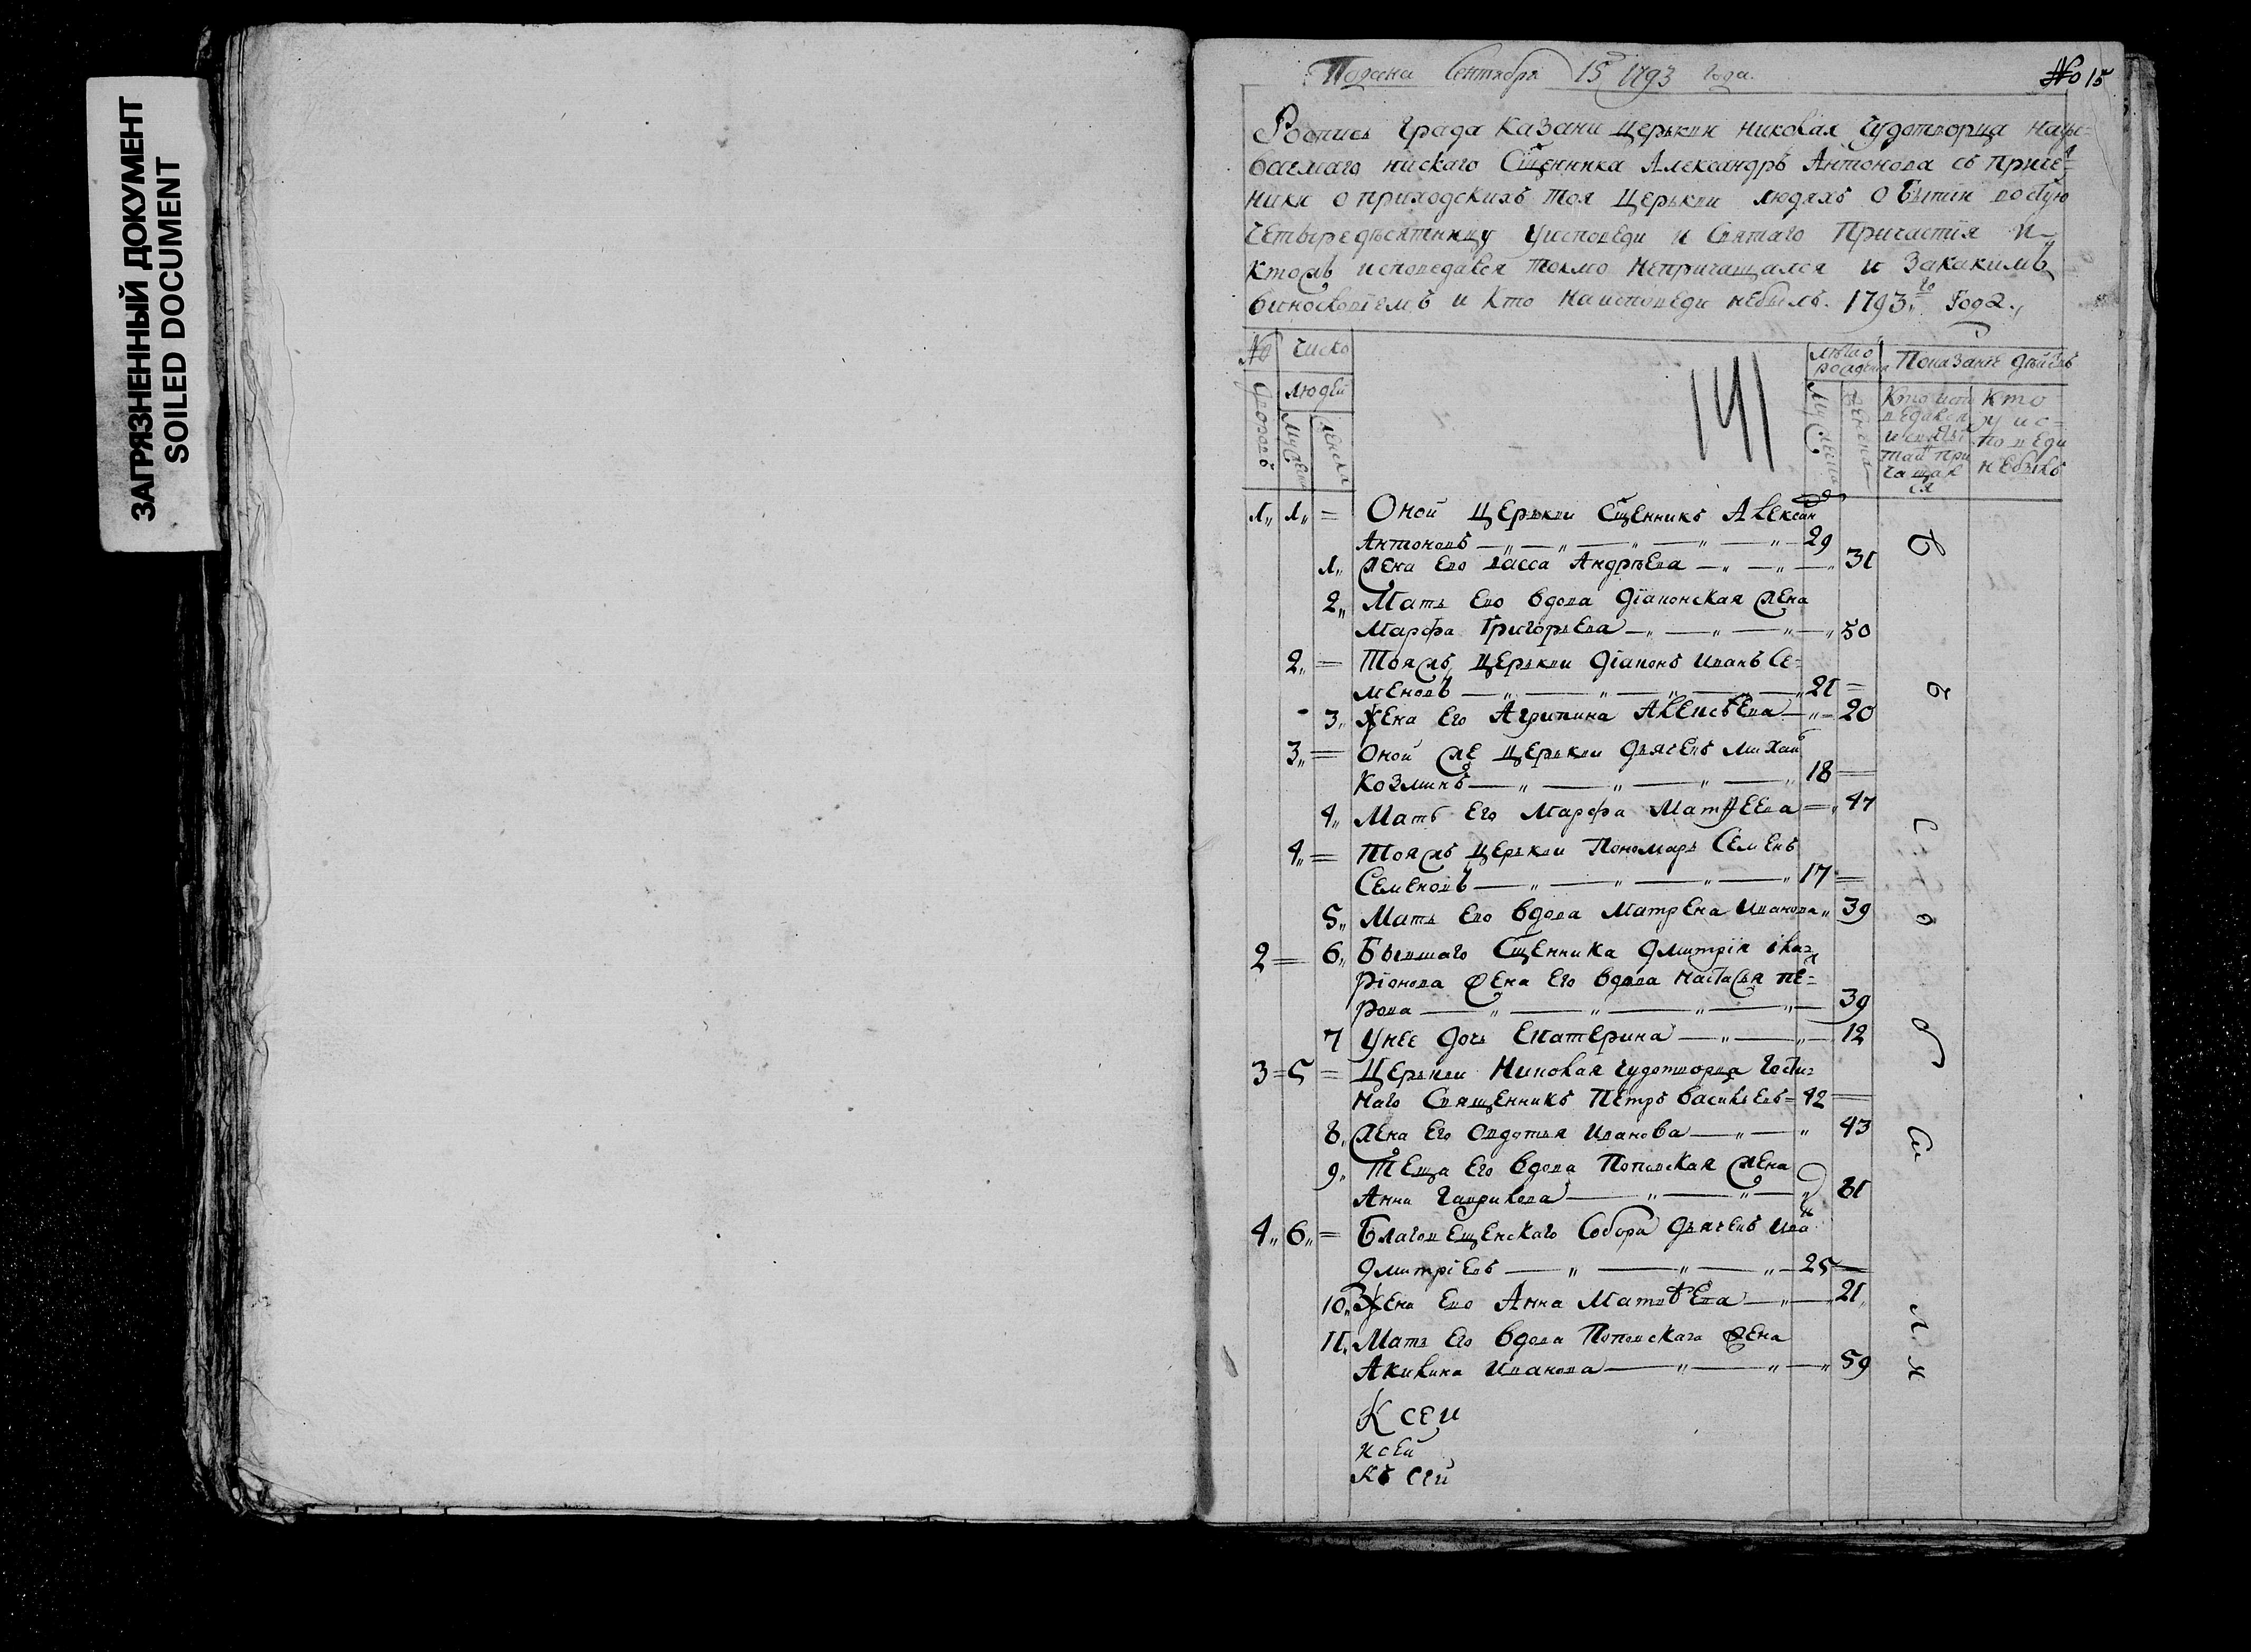 ЗАГРЯЗНЕННЫЙ ДОКУМЕНТ
SOILED DOCUMENT
Подана Сентября 15 1793 года.
No 15
Роспись града Казани церькви николая чудотворца назы-
ваемаго нискаго Сщенника Александръ Антонова съ приче-
ники о приходскихъ тоя церькви людяхъ о бытіи восвтую
четвередесятницу уисповеди и Святаго Причастия и
ктожъ исповедался токмо непричащался и закакимъ
винословіемъ и кто наисповеди небылъ. 1793го Года.
No число
людей
дворовъ мужеска женска
141
лѣто рождения
мужеска женска
Показание действъ
Кто испо ведался и святы таи при чащал ся
кто у ис- поведи небылъ
1 1 = Оной церькви Сщенникъ Александ
Антоновъ 29
1 жена его васса Андрѣева 31
2 Мать его вдова діаконская жена
Марфа Григорьева 50
2 = Тояжъ церькви діаконъ иванъ Се-
меновъ 21 =
3 жена его Агрипина Алексѣева 20
3 = Оной же церькви дьячекъ михаи
Козминъ 18
4 Мать его Марфа Матѳеева 47
4 = Тояжъ церькви Пономарь Семенъ
Семеновъ 17 =
5 Мать его вдова Матрена Иванова 39
2 = 6 Бывшаго Сщенника дмитрія ила-
ріонова жена его вдова настасья пе-
рова 39
7 унее дочь Екатерина 12
3 = 5 = Церькви Николая чудотворца гости-
наго Священникъ Петръ васильевъ 42
8 жена его овдотья иванова 43
9 Теща его вдова Поповская жена
Анна гаврилова 61
4 6 = Благовещенскаго Собора дьячекъ ива
дмитріевъ 25
10 жена его Анна Матвѣева 21
11 Мать его вдова Поповскаго жена
Акилина иванова 59
К сеи
к сей
къ сей